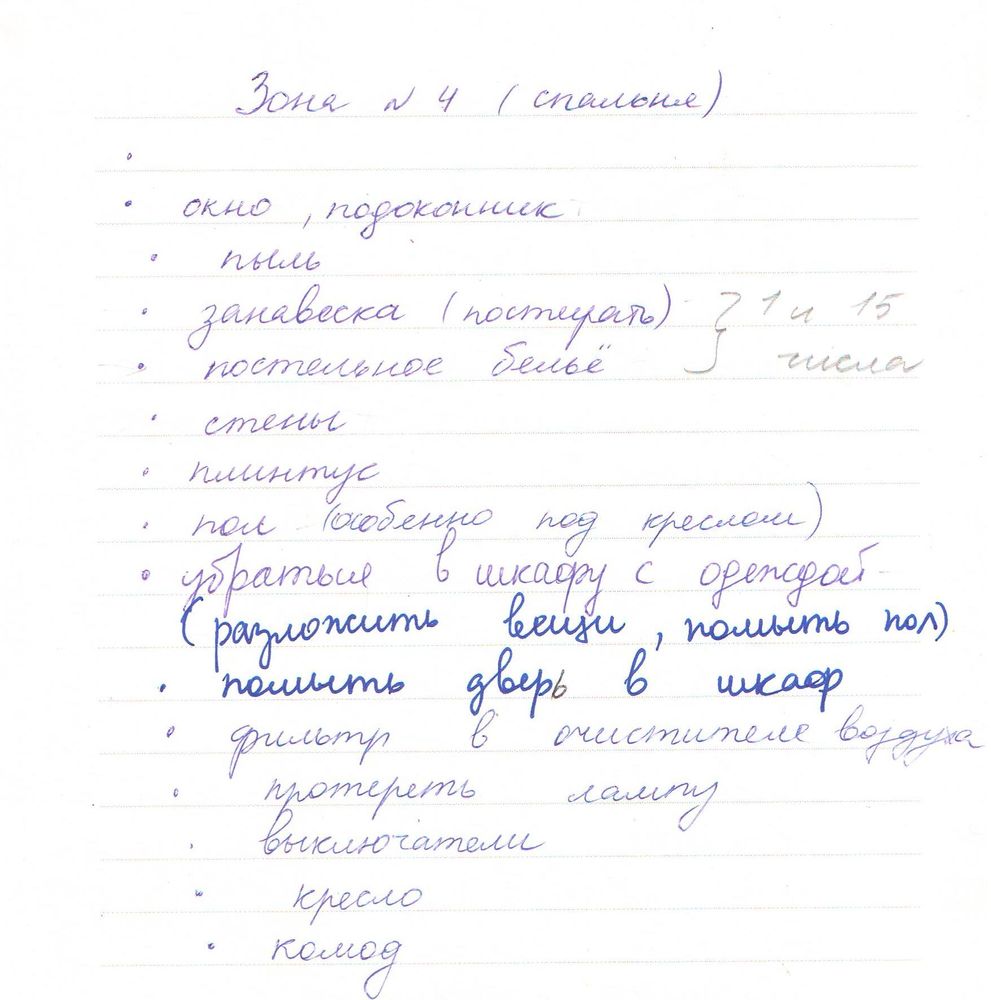 Зона № 4 (спальня)
•
• окно, подоконник
• пыль
• занавеска (постирать) } 1 и 15
• постельное бельё } числа
• стены
• плинтус
• пол (особенно под креслом)
• убраться в шкафу с одеждой
(разложить вещи, помыть пол)
• помыть дверь в шкаф
• фильтр в очистителе воздуха
• протереть лампу
• выключатели
• кресло
• комод